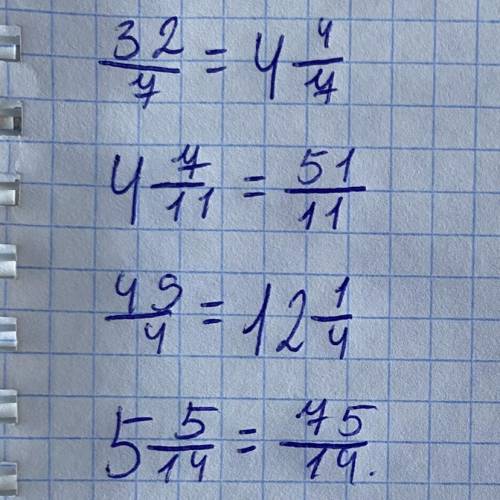 32/7 = 4 4/7
4 7/11 = 51/11
49/4 = 12 1/4
5 5/14 = 75/14.